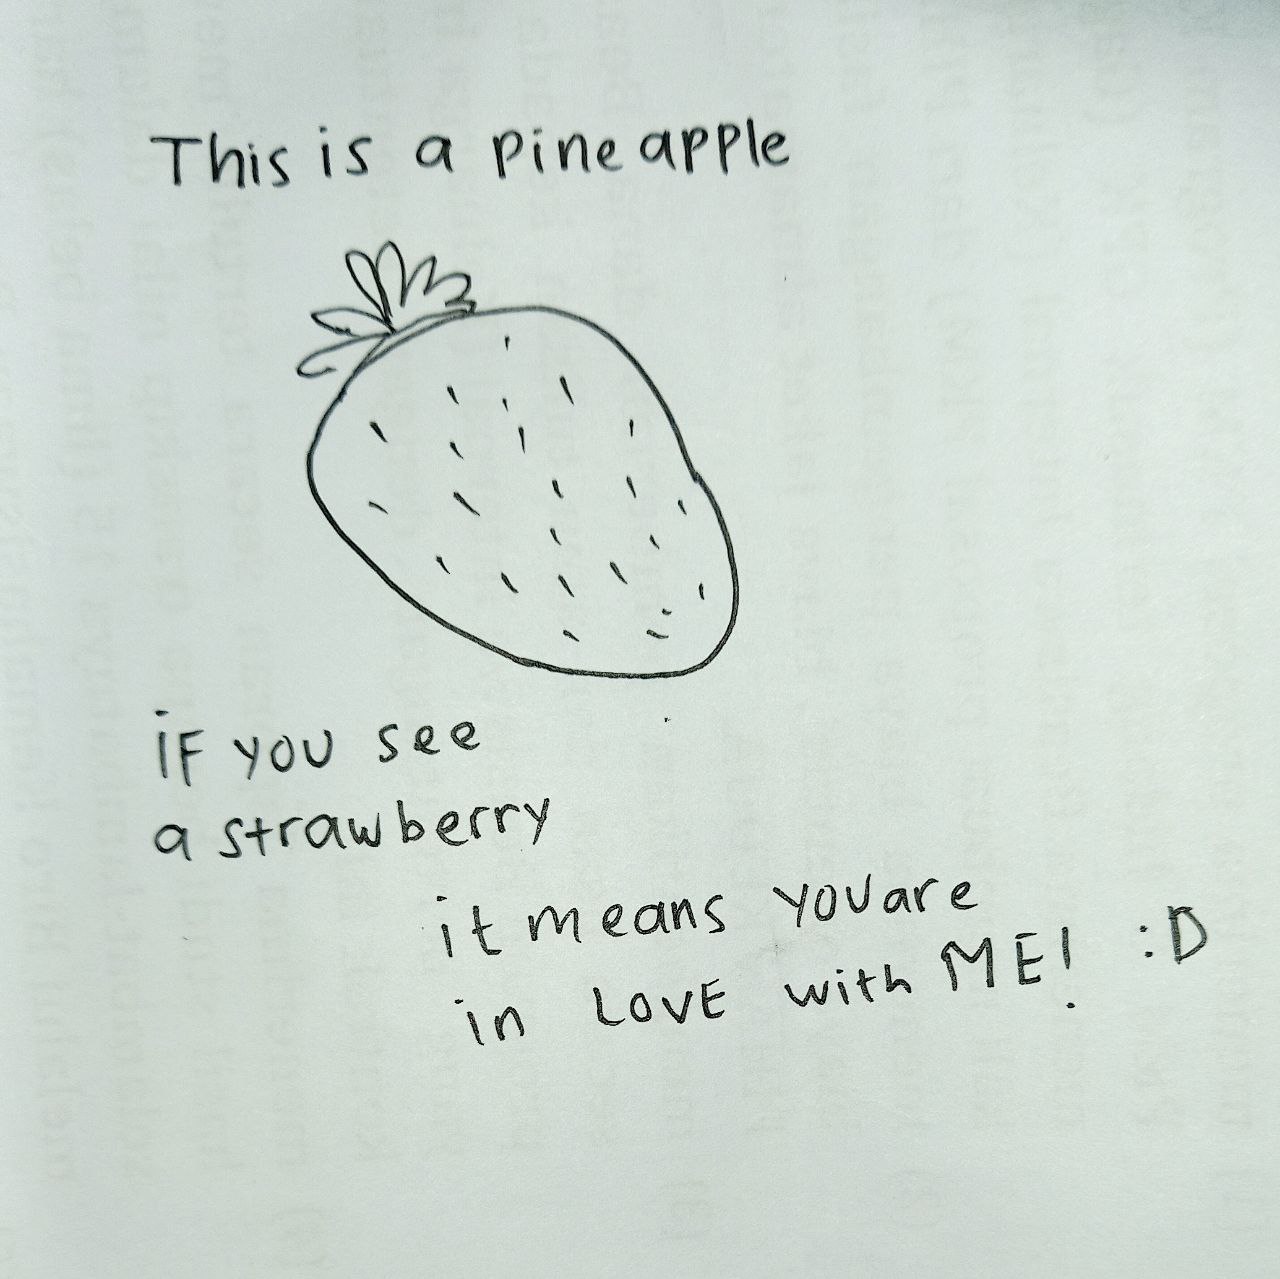 This is a pineapple
iF you see
a strawberry
it means you are
in LOVE with ME! :D